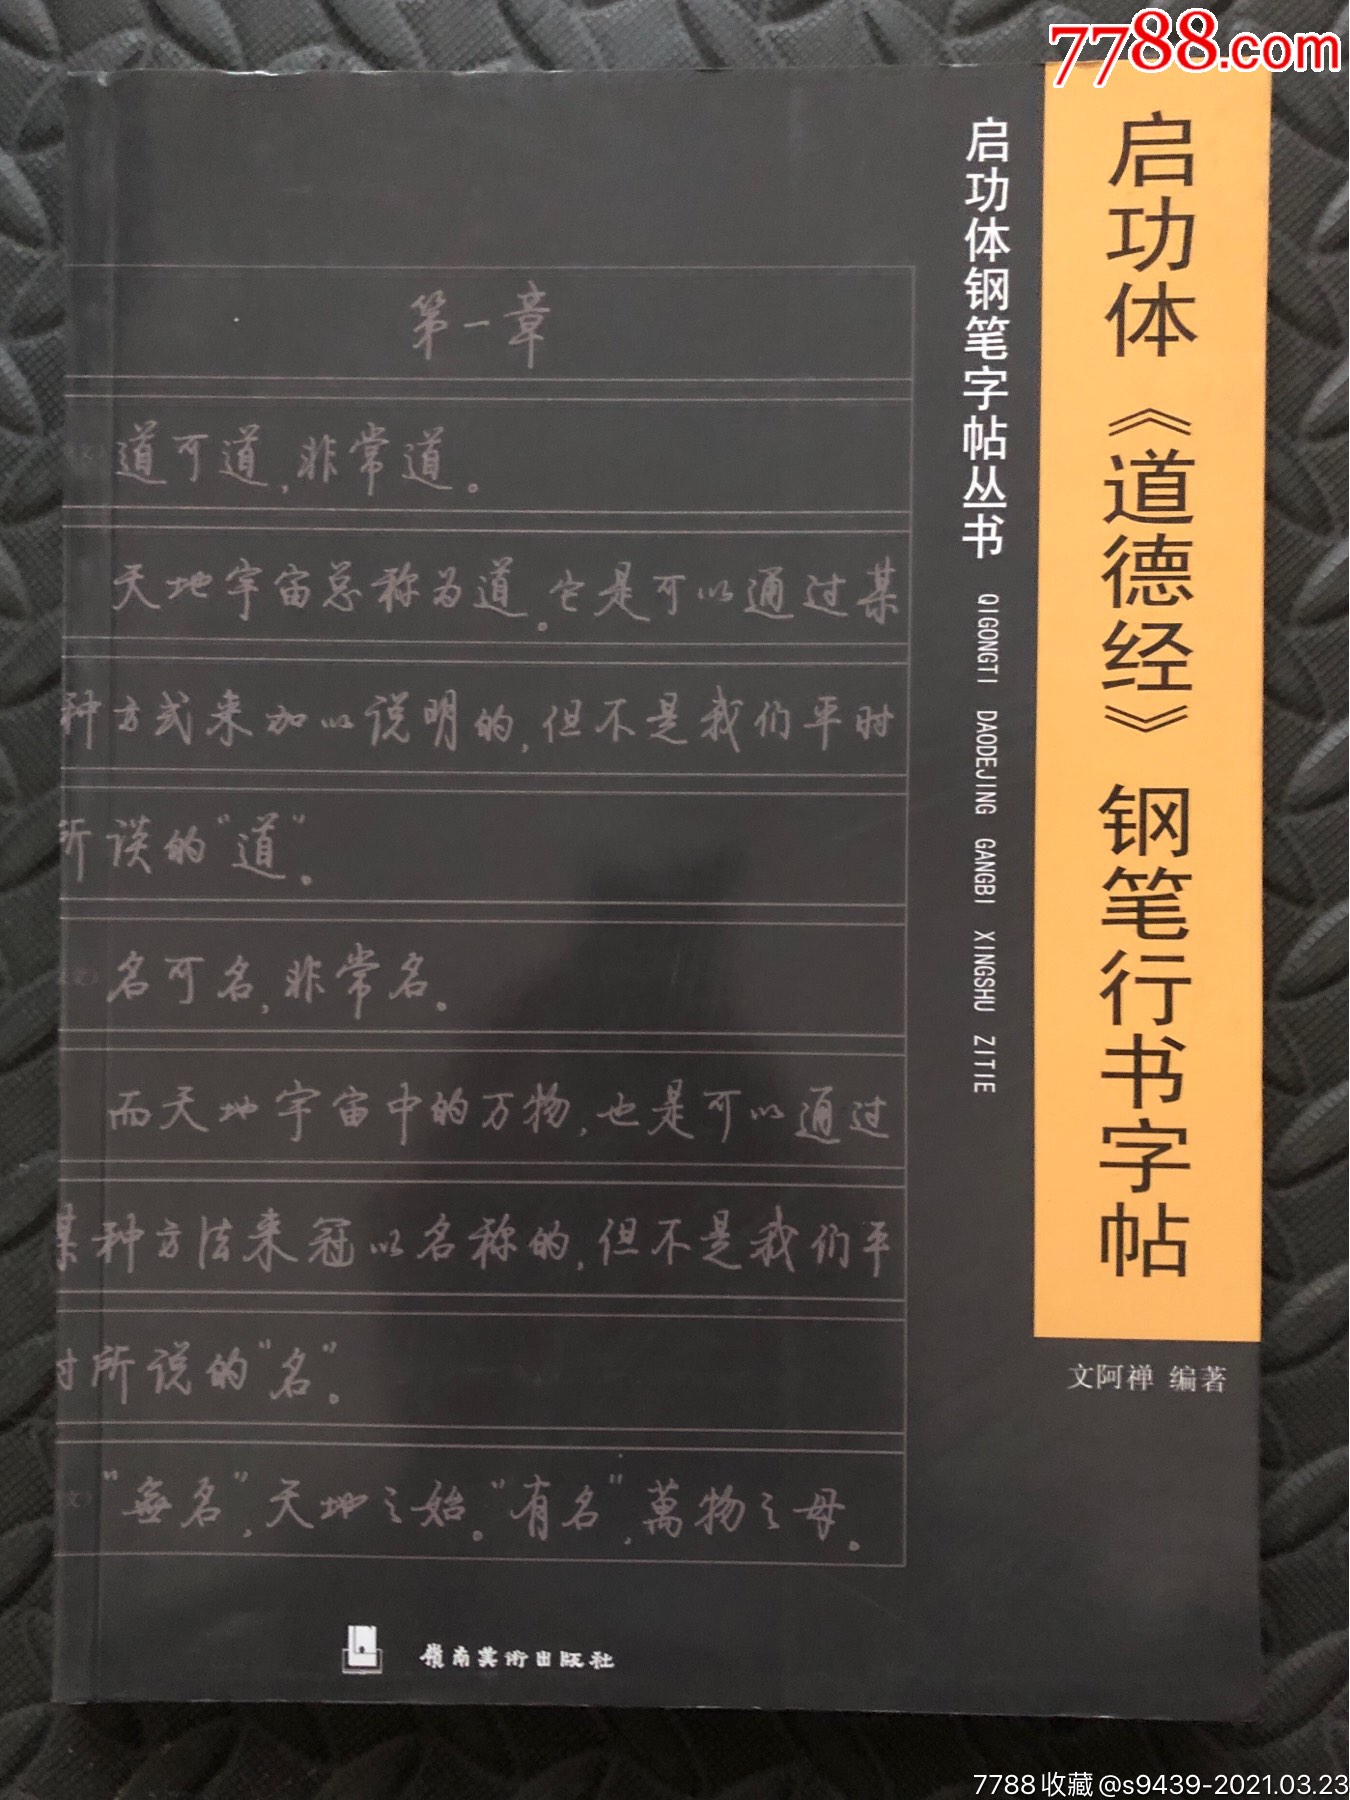 7788.com
启功体《道德经》钢笔行书字帖
启功体钢笔字帖丛书 QIGONGTI DAODEJING GANGBI XINGSHU ZITIE
文阿禅 编著
第一章
道可道,非常道。
天地宇宙总称为道。它是可以通过某
种方式来加以说明的,但不是我们平时
所谈的“道”。
名可名,非常名。
而天地宇宙中的万物,也是可以通过
某种方法来冠以名称的,但不是我们平
时所说的“名”。
文)“無名”,天地之始。“有名”,萬物之母。
嶺南美術出版社
7788收藏@s9439-2021.03.23